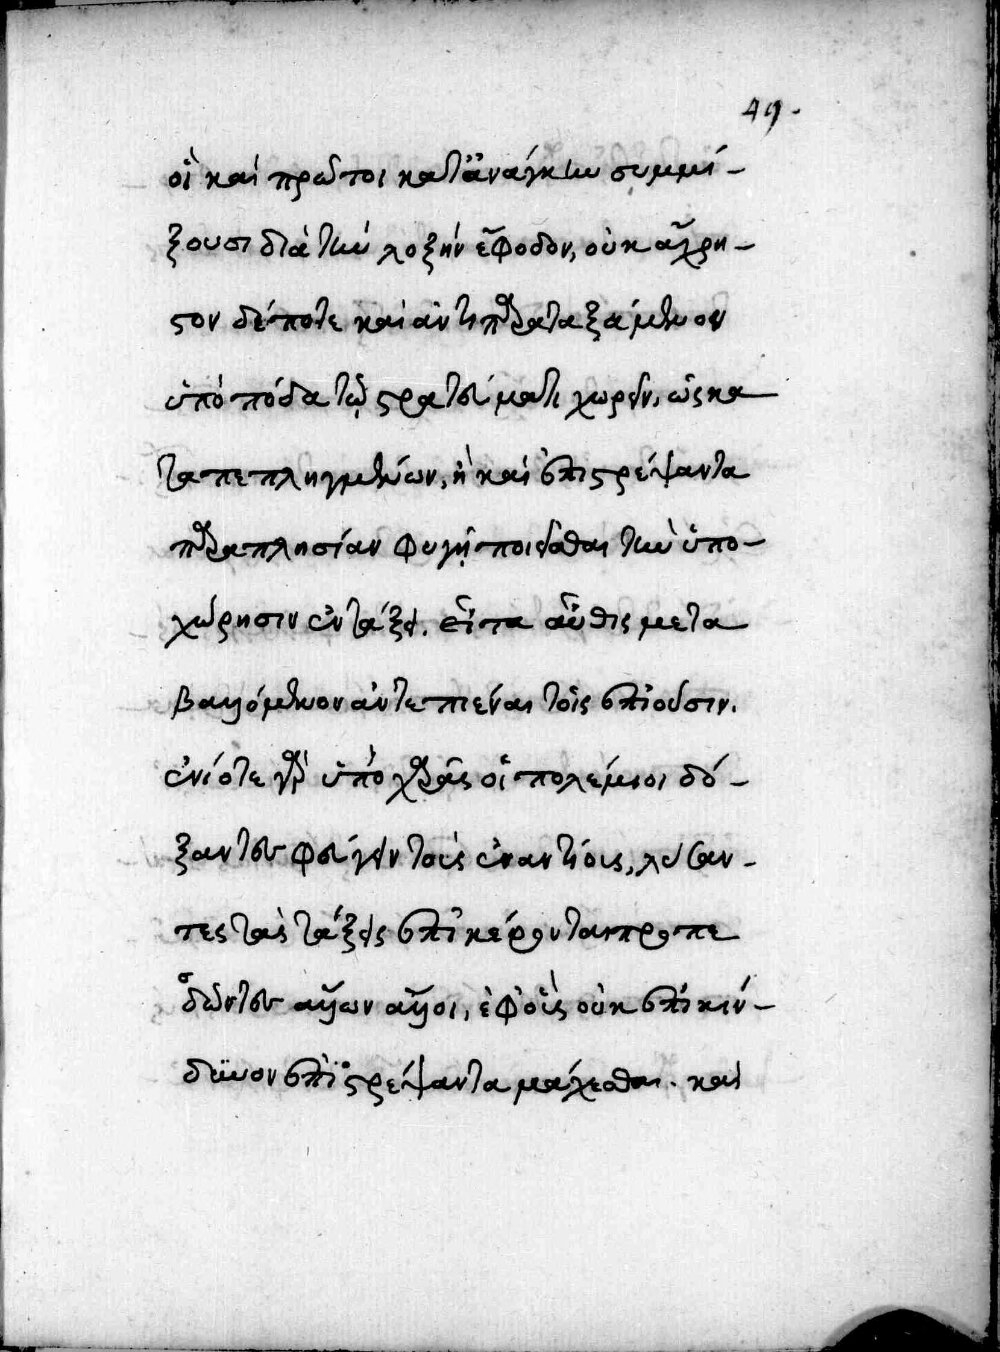 49.
οἳ καὶ πρῶτοι κατ' ἀνάγκην συμμί-
ξουσι διὰ τὴν λοξὴν ἔφοδον, οὐκ ἄχρη-
στον δέ ποτε καὶ ἀντιπαραταξάμενον
ὑπὸ πόδα τῷ στρατεύματι χωρεῖν, ὡς κα
ταπεπληγμένων, ἢ καὶ ἐπιστρέψαντα
παραπλησίαν φυγῇ ποιεῖσθαι τὴν ὑπο-
χώρησιν ἐν τάξει. εἶτα αὖθις μετα
βαλλόμενον ἀντεπιέναι τοῖς ἐπιοῦσιν.
ἐνίοτε γὰρ ὑπὸ χαρᾶς οἱ πολέμιοι δό-
ξαντες φεύγειν τοὺς ἐναντίους, λύσαν-
τες τὰς τάξεις ἐπικέρονται προπε
δῶντες ἄλλων ἄλλοι, ἐφ' οἷς οὐκ ἐπικίν-
δυνον ἐπιστρέψαντα μάχεσθαι. καὶ